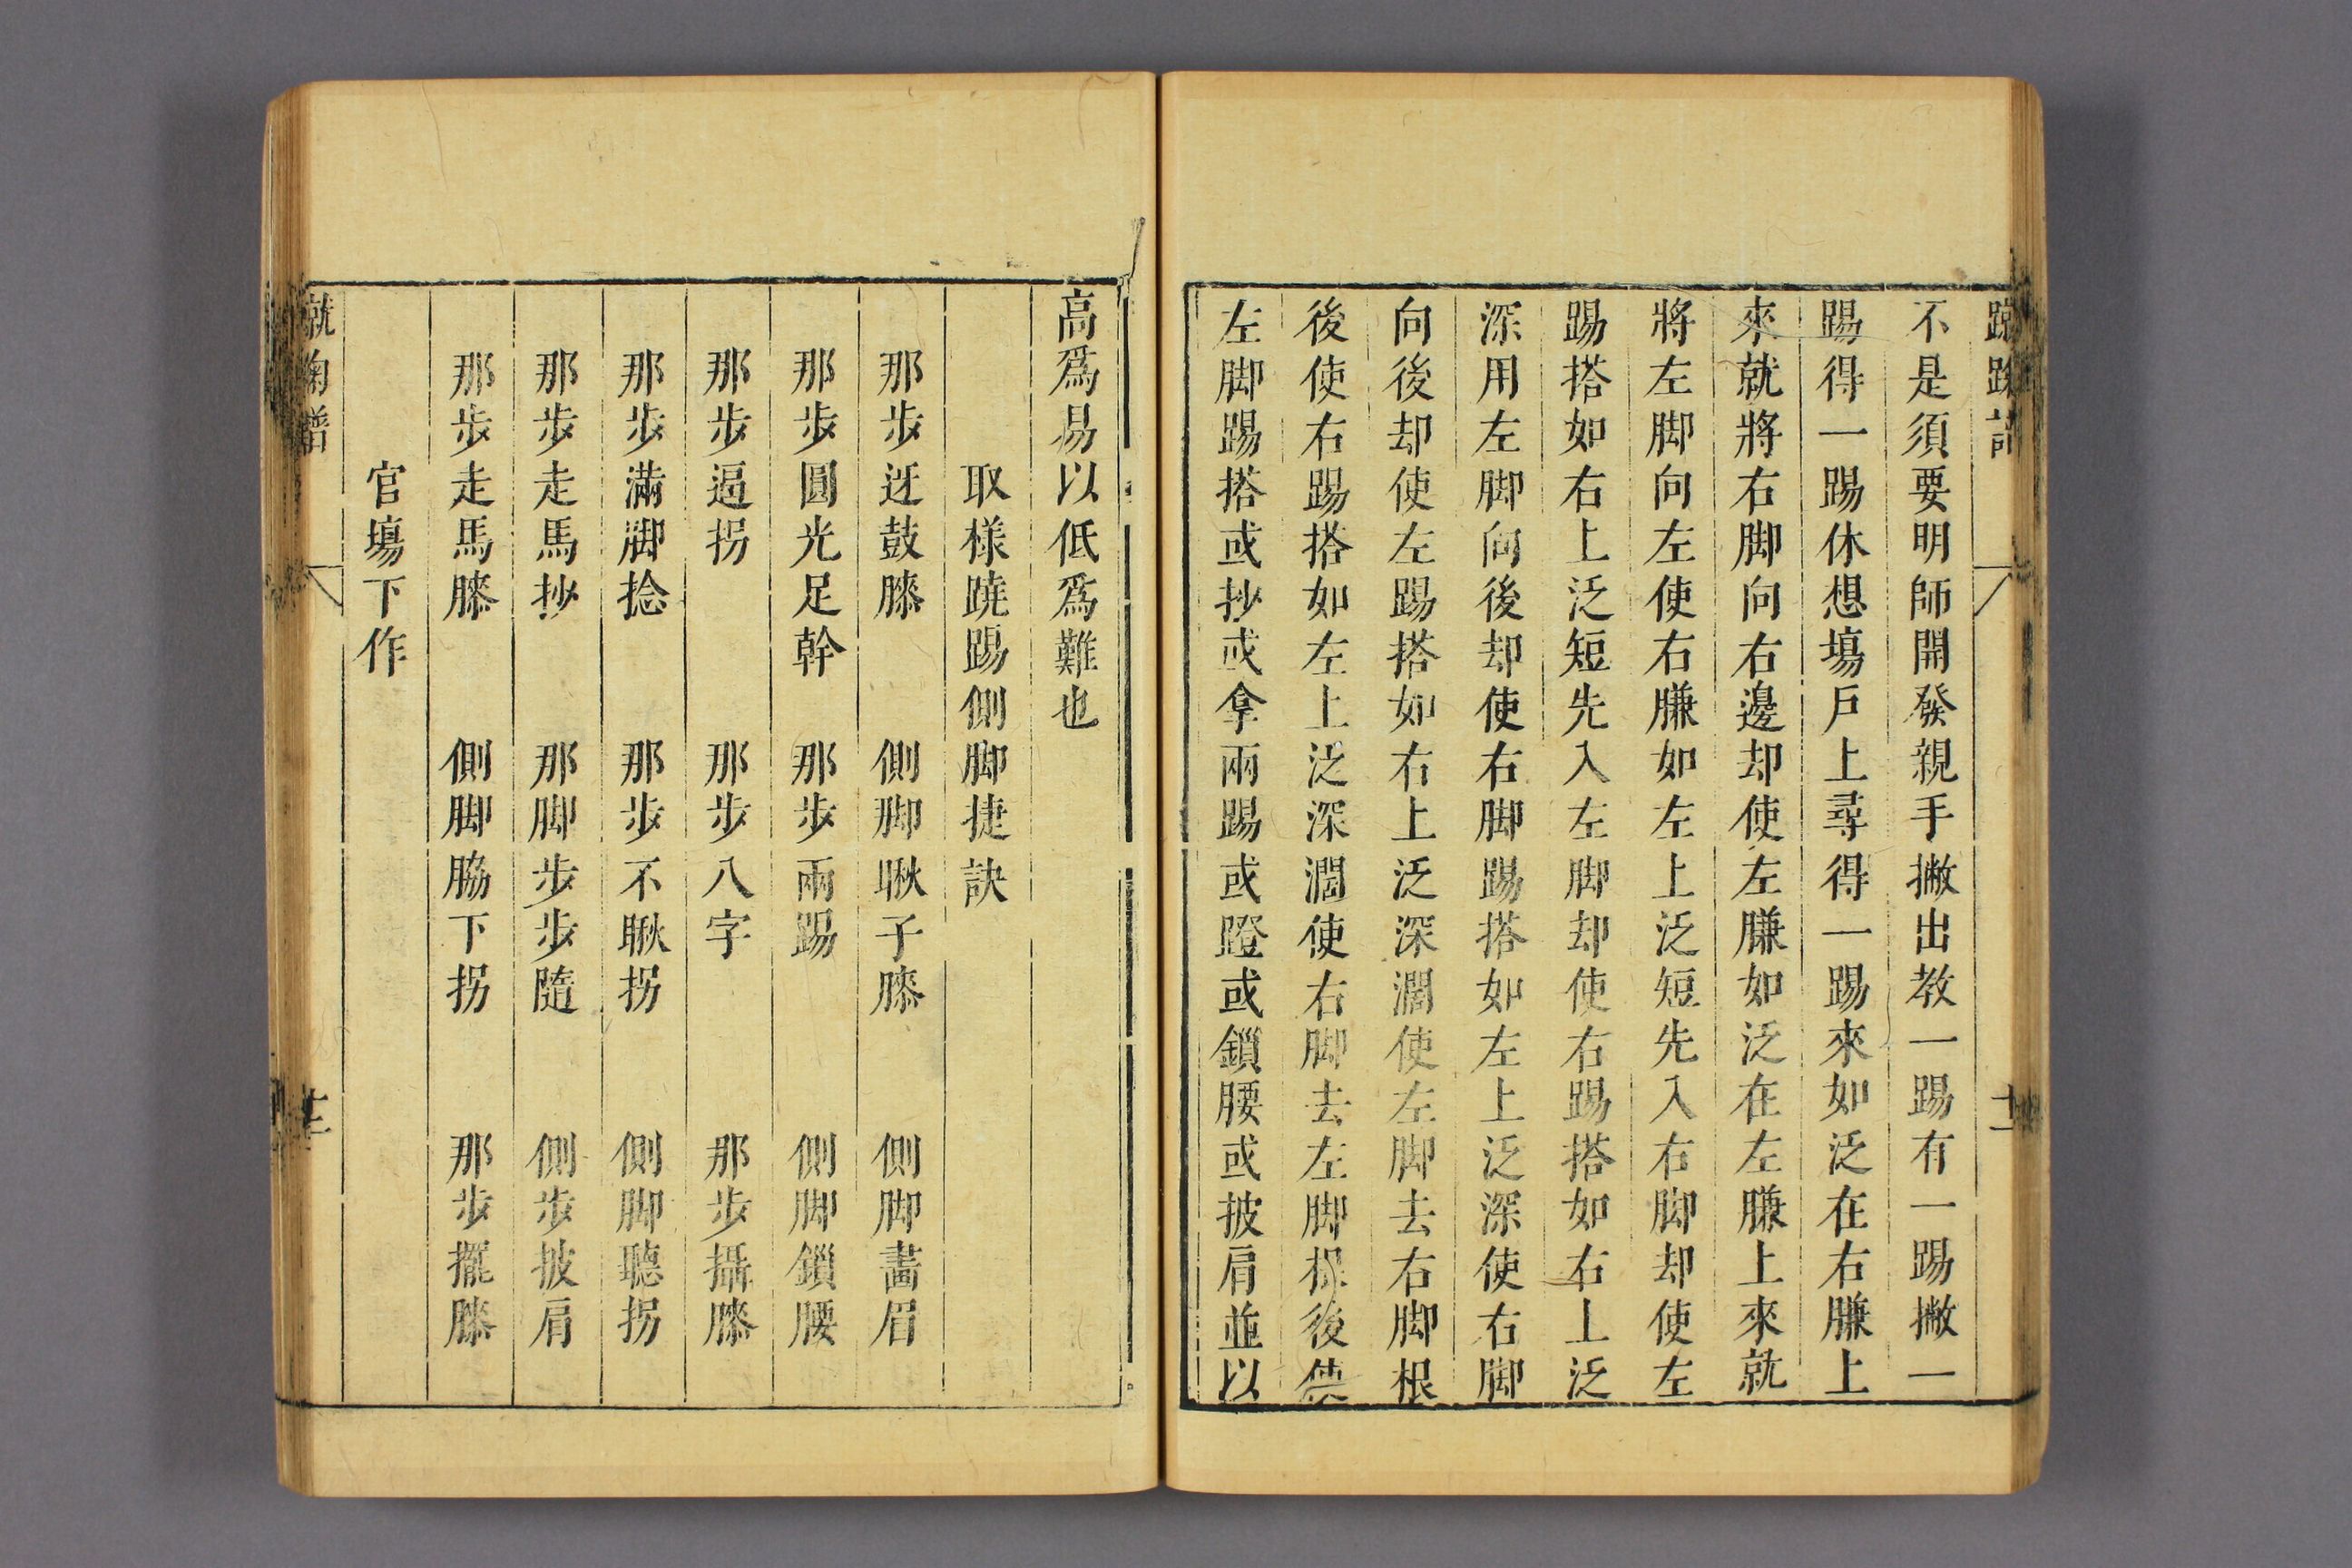 不是須要明師開發親手撇出教一踢有一踢撇一
踢得一踢休想塲戶上尋得一踢來如泛在右臁上
來就將右脚向右邊却使左臁如泛在左臁上來就
將左脚向左使右臁如左上泛短先入右脚却使左
踢搭如右上泛短先入左脚却使右踢搭如右上泛
深用左脚向後却使右脚踢搭如左上泛深使右脚
向後却使左踢搭如右上泛深濶使左脚去右脚根
後使右踢搭如左上泛深濶使右脚去左脚根後使
左脚踢搭或抄或拿兩踢或蹬或鎖腰或披肩並以
高爲易以低爲難也
取樣蹺踢側脚捷訣
那步迓鼓膝 側脚瞅子膝 側脚畵眉
那步圓光足幹 那步兩踢 側脚鎖腰
那步逼拐 那步八字 那步攝膝
那步滿脚捻 那步不瞅拐 側脚聽拐
那步走馬抄 那脚步步隨 側步披肩
那步走馬膝 側脚脇下拐 那步擺膝
官塲下作
就鞠譜